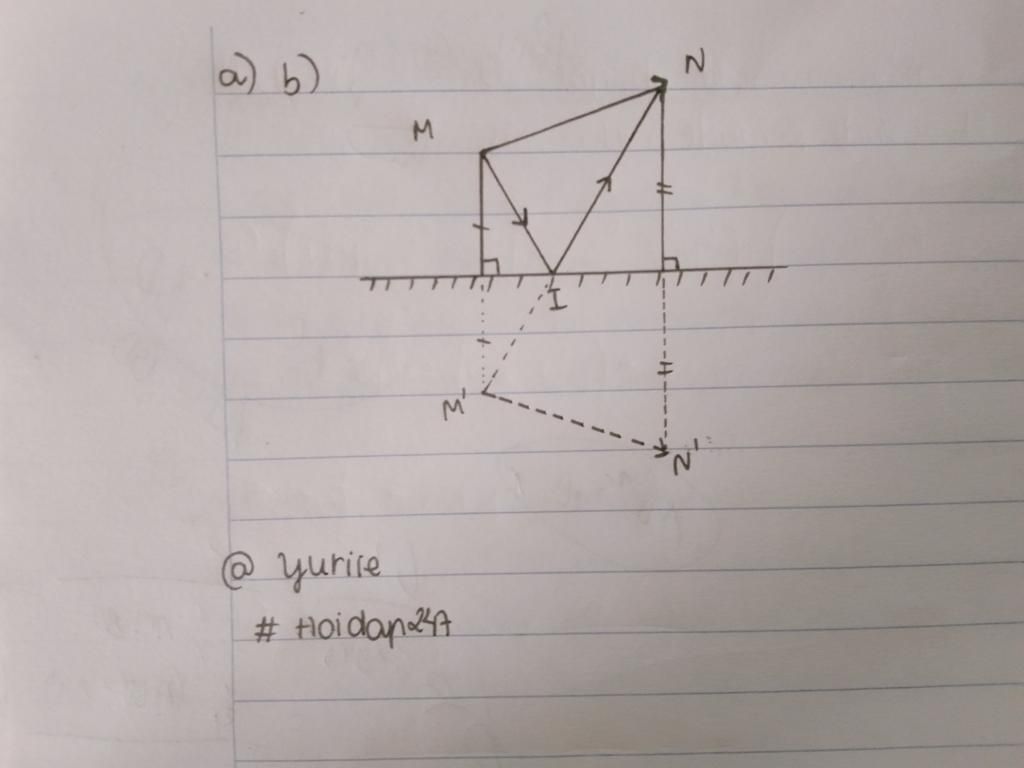 a) b)
N
M
I
M'
N'
@ yuriie
# Hoidap247